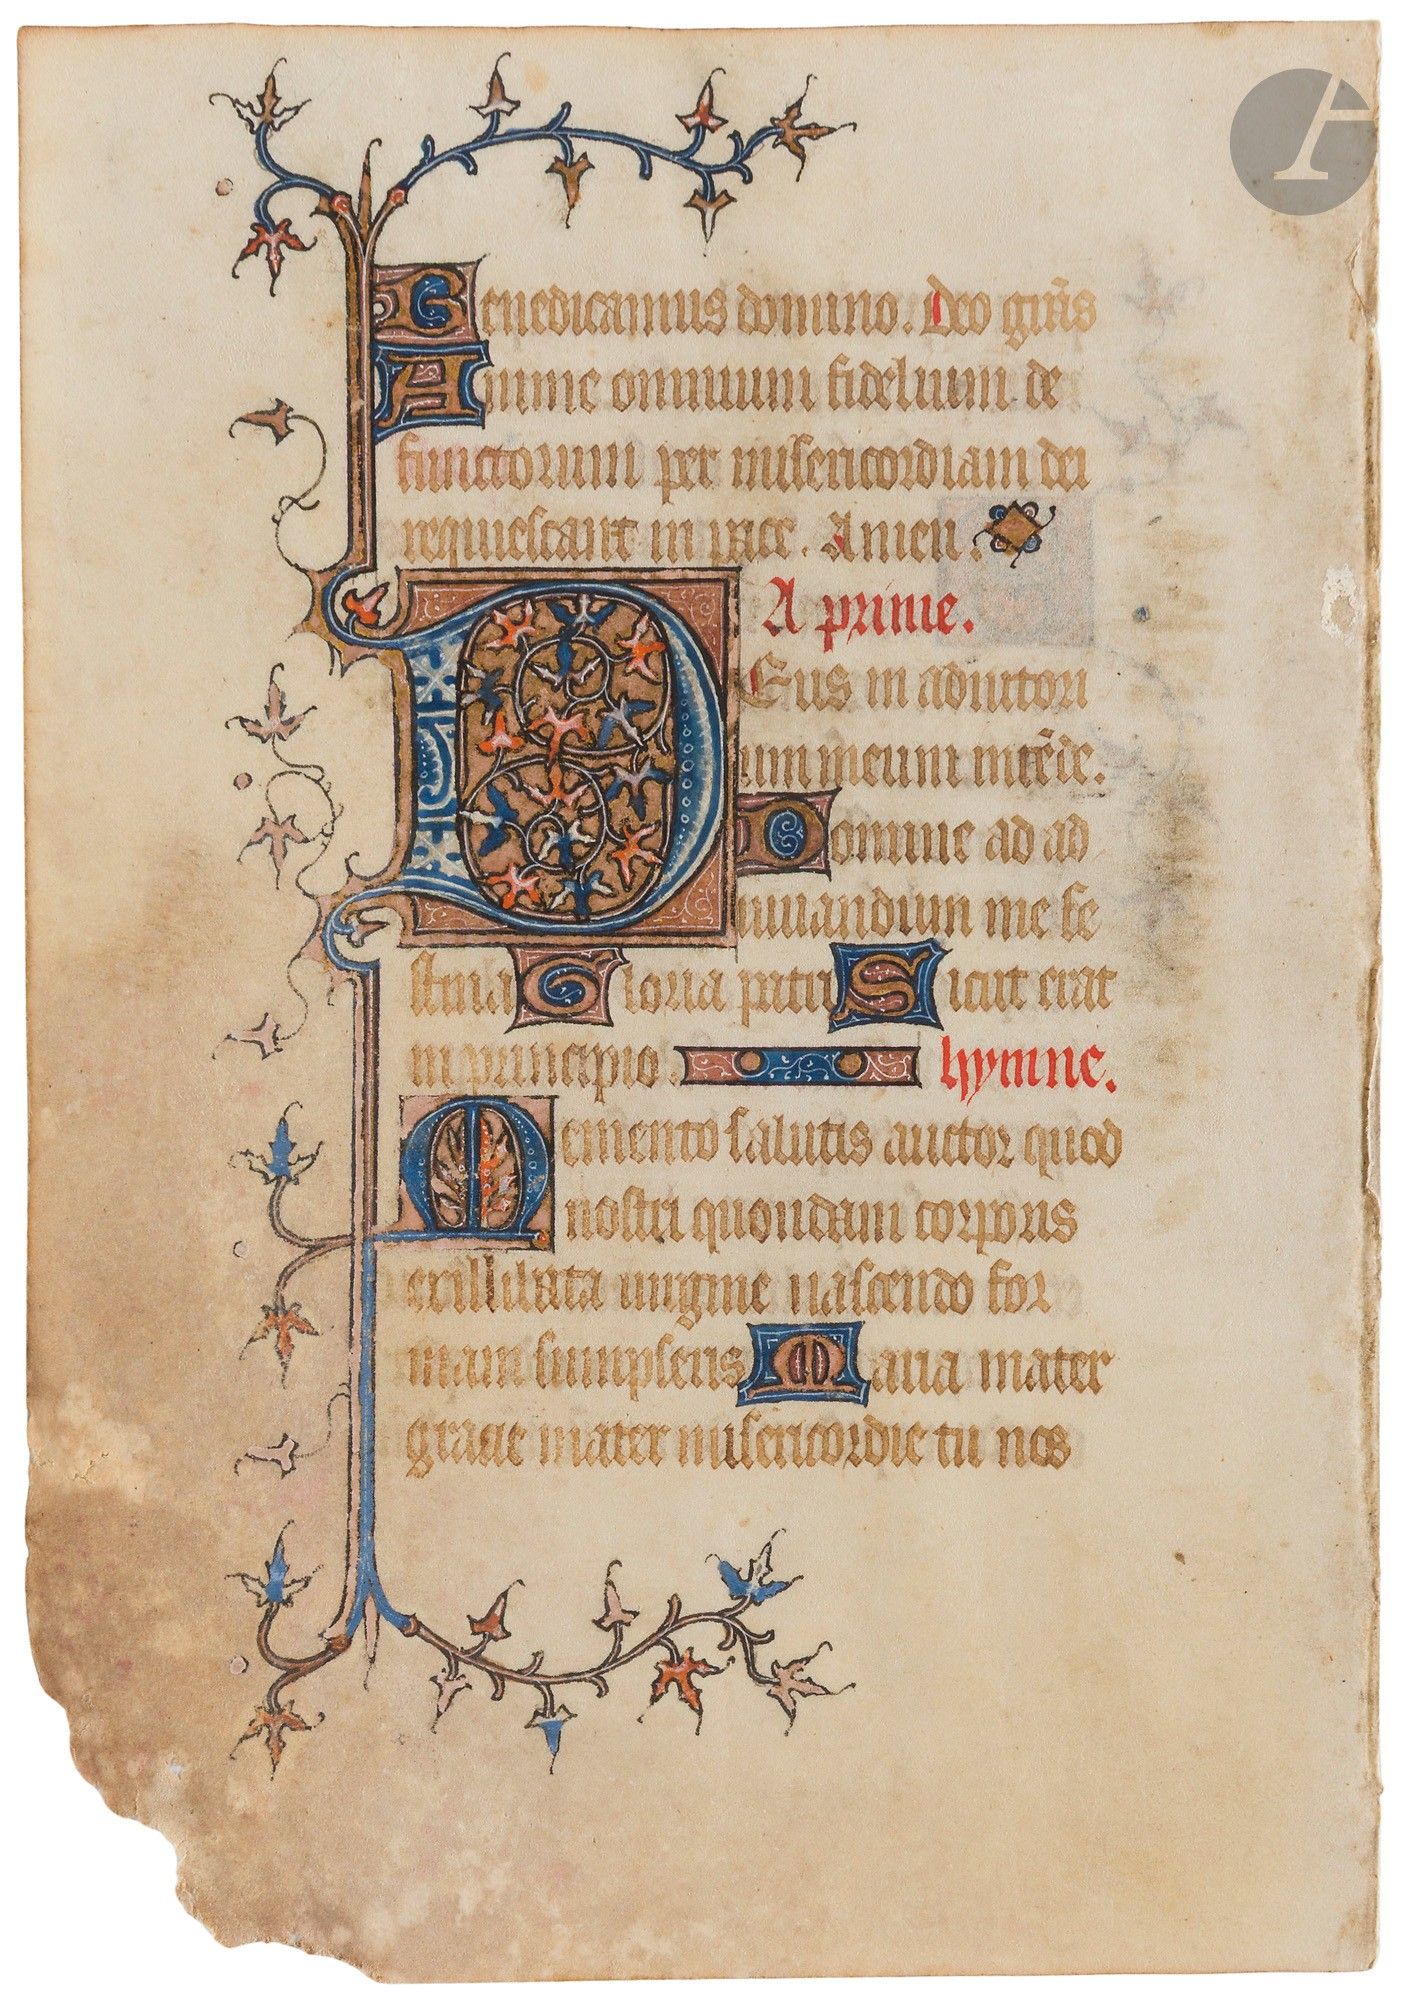 Benedicamus domino. Deo gr̃as
Anime omnium fidelium de
functorum per misericordiam dei
requiescant in pace. Amen.
A prime.
DEus in adiutori
um meum intẽde.
Domine ad ad
iuuandum me fe
stina Gloria patri Sicut erat
in principio. hymne.
Memento salutis auctor quod
nostri quondam corporis
ex illibata uirgine nascendo for
mam sumpseris Maria mater
gracie mater misericordie tu nos